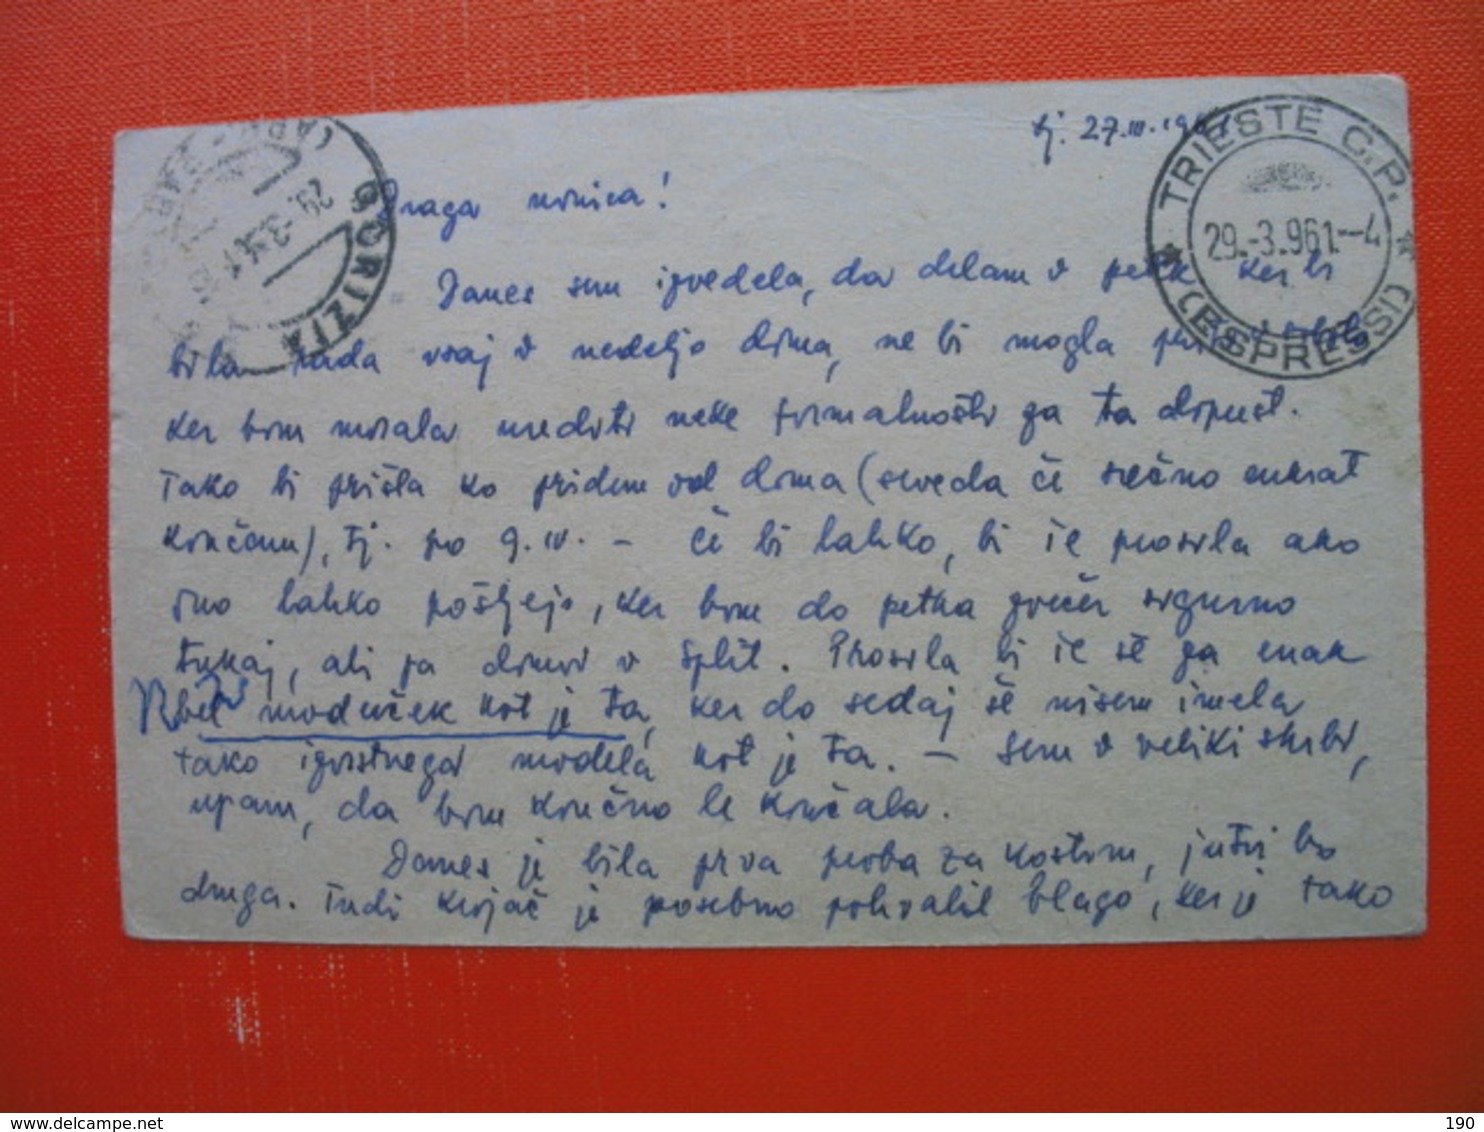 Lj. 27.III.1961
TRIESTE C.P.
29.-3.961.--4
(ESPRESSI)
GORIZIA
Draga nonica!
Danes sem izvedela, da delam v petek ker bi
bila rada vsaj v nedeljo doma, ne bi mogla
ker bom morala urediti neke formalnosti za ta dopust.
Tako bi prišla ko pridem od doma (seveda če srečno enkrat
končam), tj. po 9.IV. – Če bi lahko, bi te prosila ako
smo lahko pošljejo, ker bom do petka zvečer sigurno
tukaj, ali pa domov v Split. Prosila bi te še za enak
bel modrček kot je ta, ker do sedaj še nisem imela
tako izvrstnega modela kot je ta. – Sem v veliki skrbi,
upam, da bom končno le končala.
Danes je bila prva proba za kostum, jutri bo
druga. Tudi krojač je posebno pohvalil blago, ker je tako
delcampe.net
190